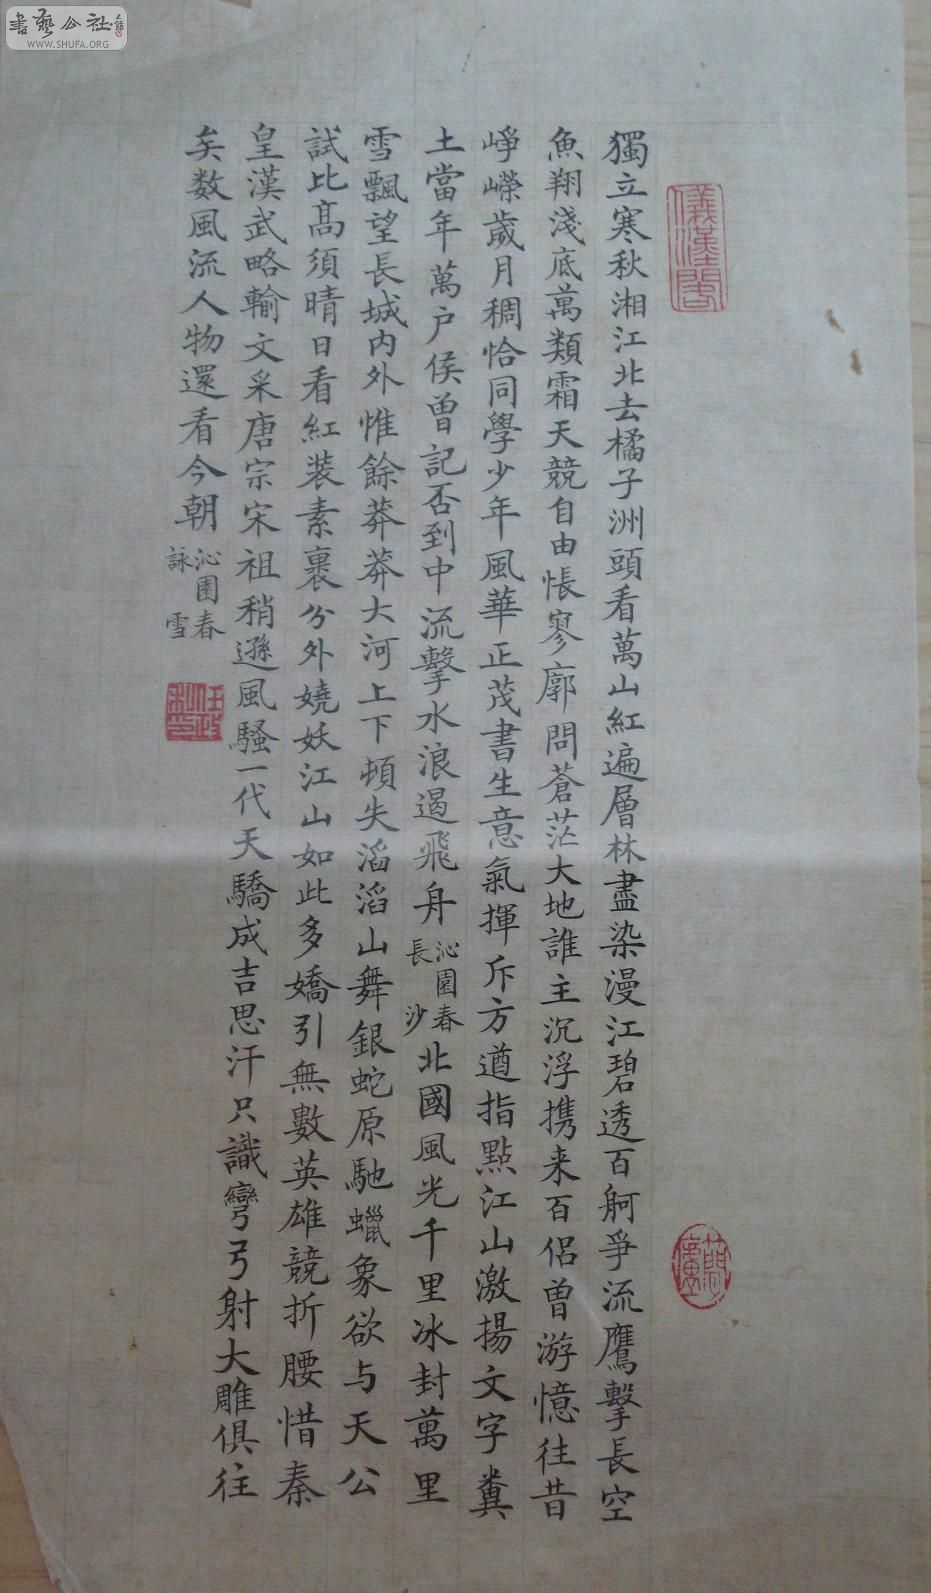 書藝公社
WWW.SHUFA.ORG
獨立寒秋湘江北去橘子洲頭看萬山紅遍層林盡染漫江碧透百舸爭流鷹擊長空
魚翔淺底萬類霜天競自由悵寥廓問蒼茫大地誰主沉浮攜来百侶曾游憶往昔
崢嶸歲月稠恰同學少年風華正茂書生意氣揮斥方遒指點江山激揚文字糞
土當年萬户侯曾記否到中流擊水浪遏飛舟沁園春長沙北國風光千里冰封萬里
雪飄望長城内外惟餘莽莽大河上下頓失滔滔山舞銀蛇原馳蠟象欲与天公
試比高須晴日看紅装素裹分外嬈妖江山如此多嬌引無數英雄競折腰惜秦
皇漢武略輸文采唐宗宋祖稍遜風騷一代天驕成吉思汗只識彎弓射大雕俱往
矣数風流人物還看今朝沁園春詠雪